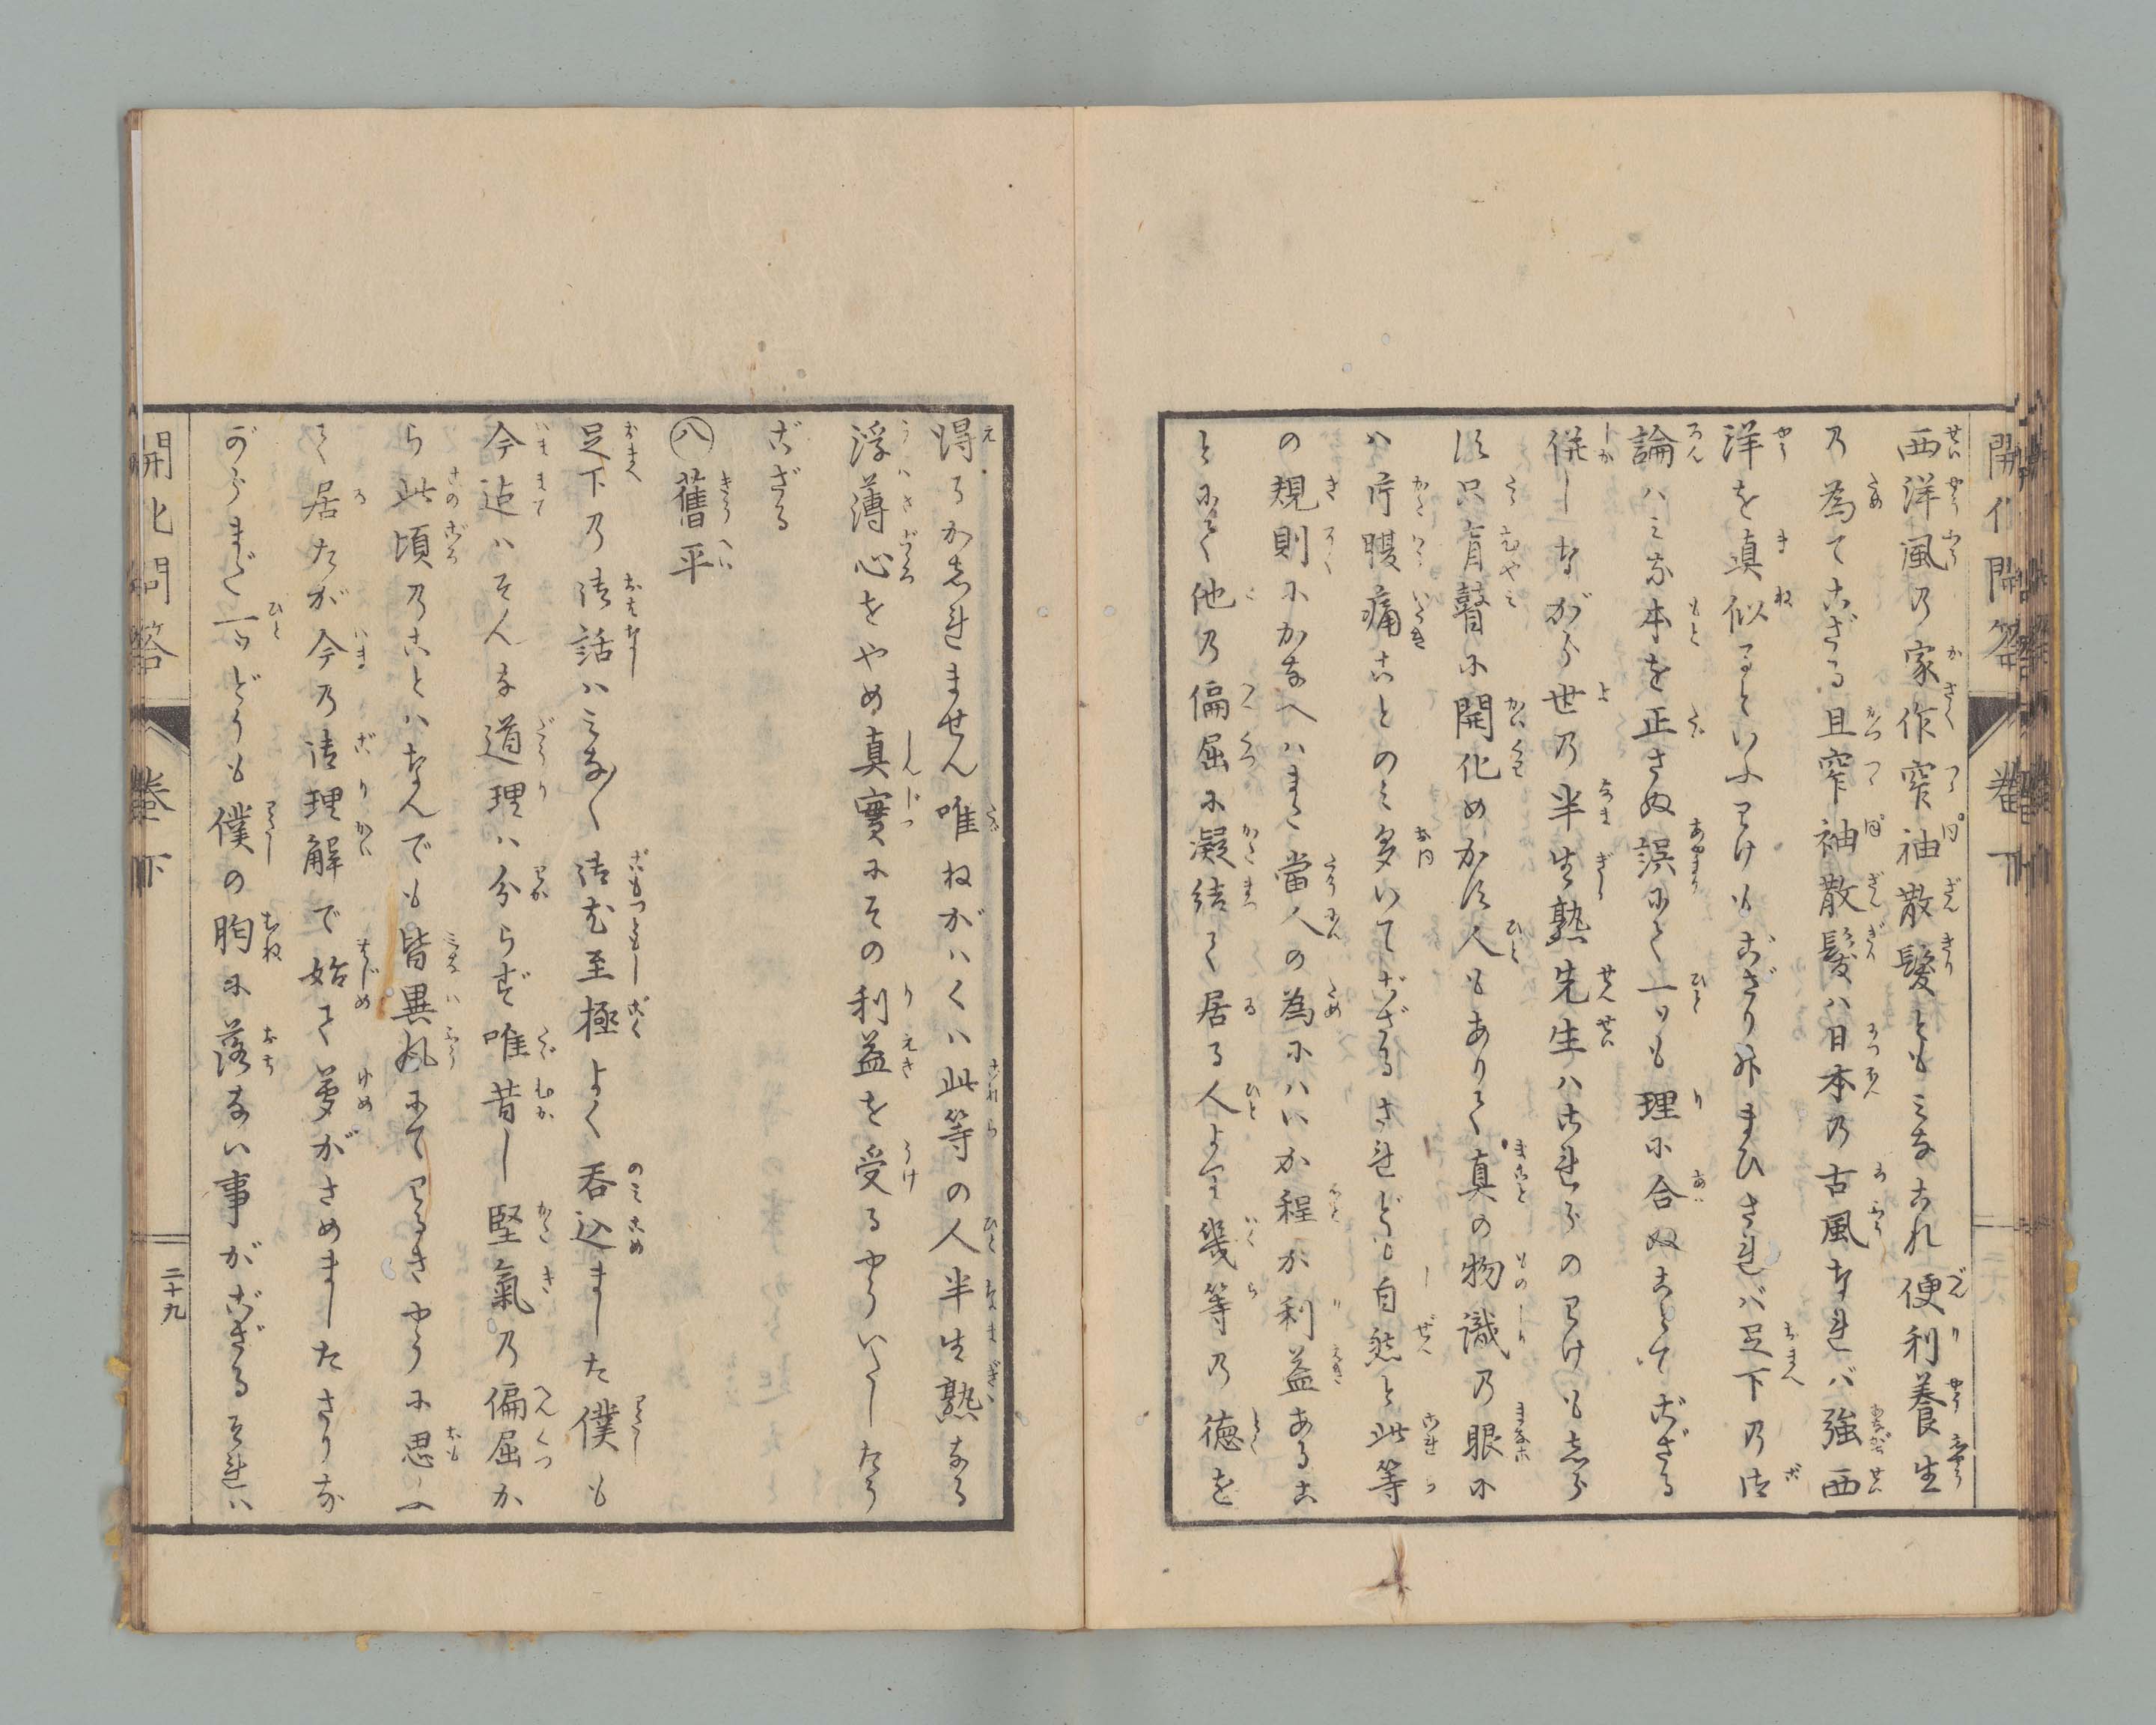 西洋風乃家作窄袖散髪ともみなこれ便利養生
乃為てござる且窄袖散髪ハ日本乃古風なれバ強西
洋を真似るといふわけもござり升まひされバ足下乃御
論ハみな本を正さぬ誤にて一ツも理に合ぬことでござる
併しながら世乃半生熟先生ハこれらのわけもしら
ず只盲瞽に開化めかす人もありて真の物識乃眼に
ハ片腹痛ことのミ多いてござるされども自然と此等
の規則にかなへハまた當人の為にハいか程か利益あるこ
とにて他乃偏屈に凝結て居る人より幾等乃徳を
開化問答 巻下
得るかしれません唯ねがハくハ此等の人半生熟なる
浮薄心をやめ真實にその利益を受るやういたしたう
ござる
㊇舊平
足下乃御話ハみな〳〵御尤至極よく呑込ました僕も
今迠ハそんな道理ハ分らず唯昔し堅氣乃偏屈か
ら此頃乃ことハなんでも皆異風にてわるきやうに思へ
て居たが今乃御理解で始て夢がさめましたさりな
がらまだ一ツどうも僕の胸に落ない事がござるそれハ
開化問答 巻下
二十九